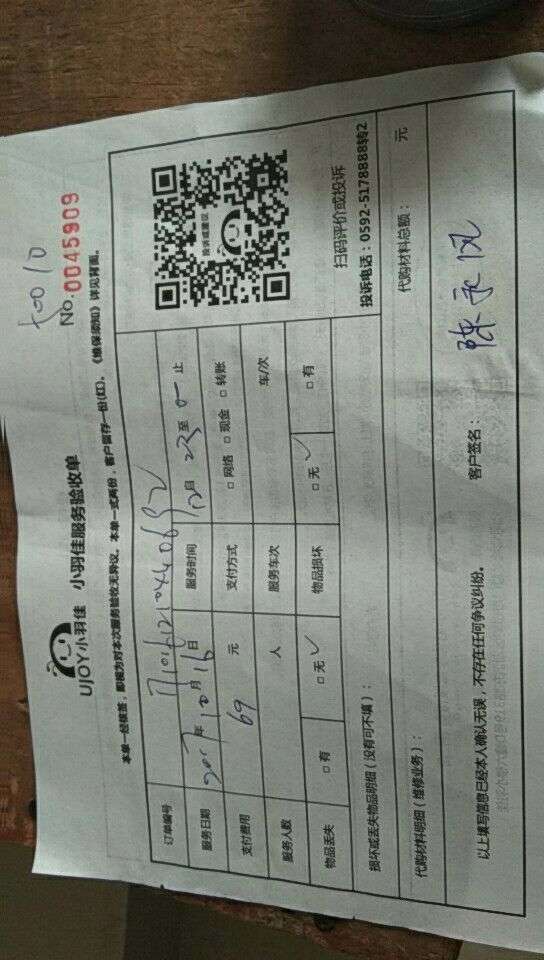 50010
UJOY小羽佳 小羽佳服务验收单 No.0045909
本单一经核签，即视为对本次服务验收无异议。本单一式两份，客户留存一份(红)。《维保须知》详见背面。
订单编号
服务日期 2017年10月16日 服务时间
支付费用 69 元 支付方式 □网络 □现金 □转账
服务人数 人 服务车次 车/次
物品丢失 □有 □无✓ 物品损坏 □无✓ □有
投诉或建议
扫码评价或投诉
投诉电话：0592-5178888转2
损坏或丢失物品明细（没有可不填）：
代购材料明细（维修业务）： 代购材料总额： 元
以上填写信息已经本人确认无误，不存在任何争议纠纷。 客户签名： 陈永风